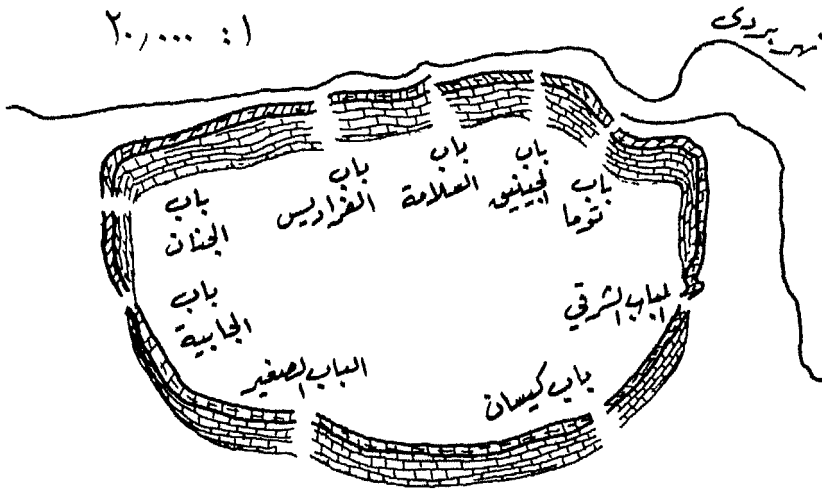 ١ : ٢٠,٠٠٠
نهر بردى
باب
الفراديس
باب
السلامة
باب
الجينيق
باب
توما
باب
الجنان
باب
الجابية
الباب الشرقي
الباب الصغير
باب كيسان